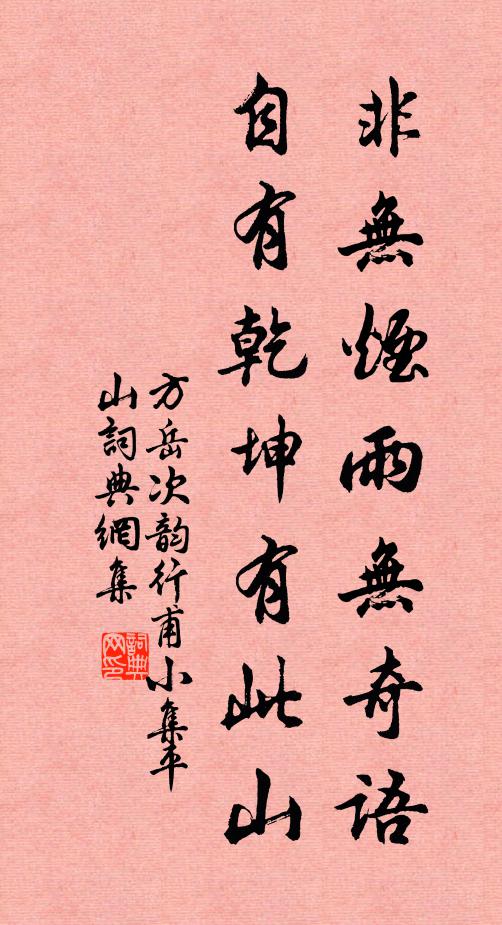 非無煙雨無奇語
自有乾坤有此山
方岳次韵行甫小集平
山詞典網集
詞典
网印